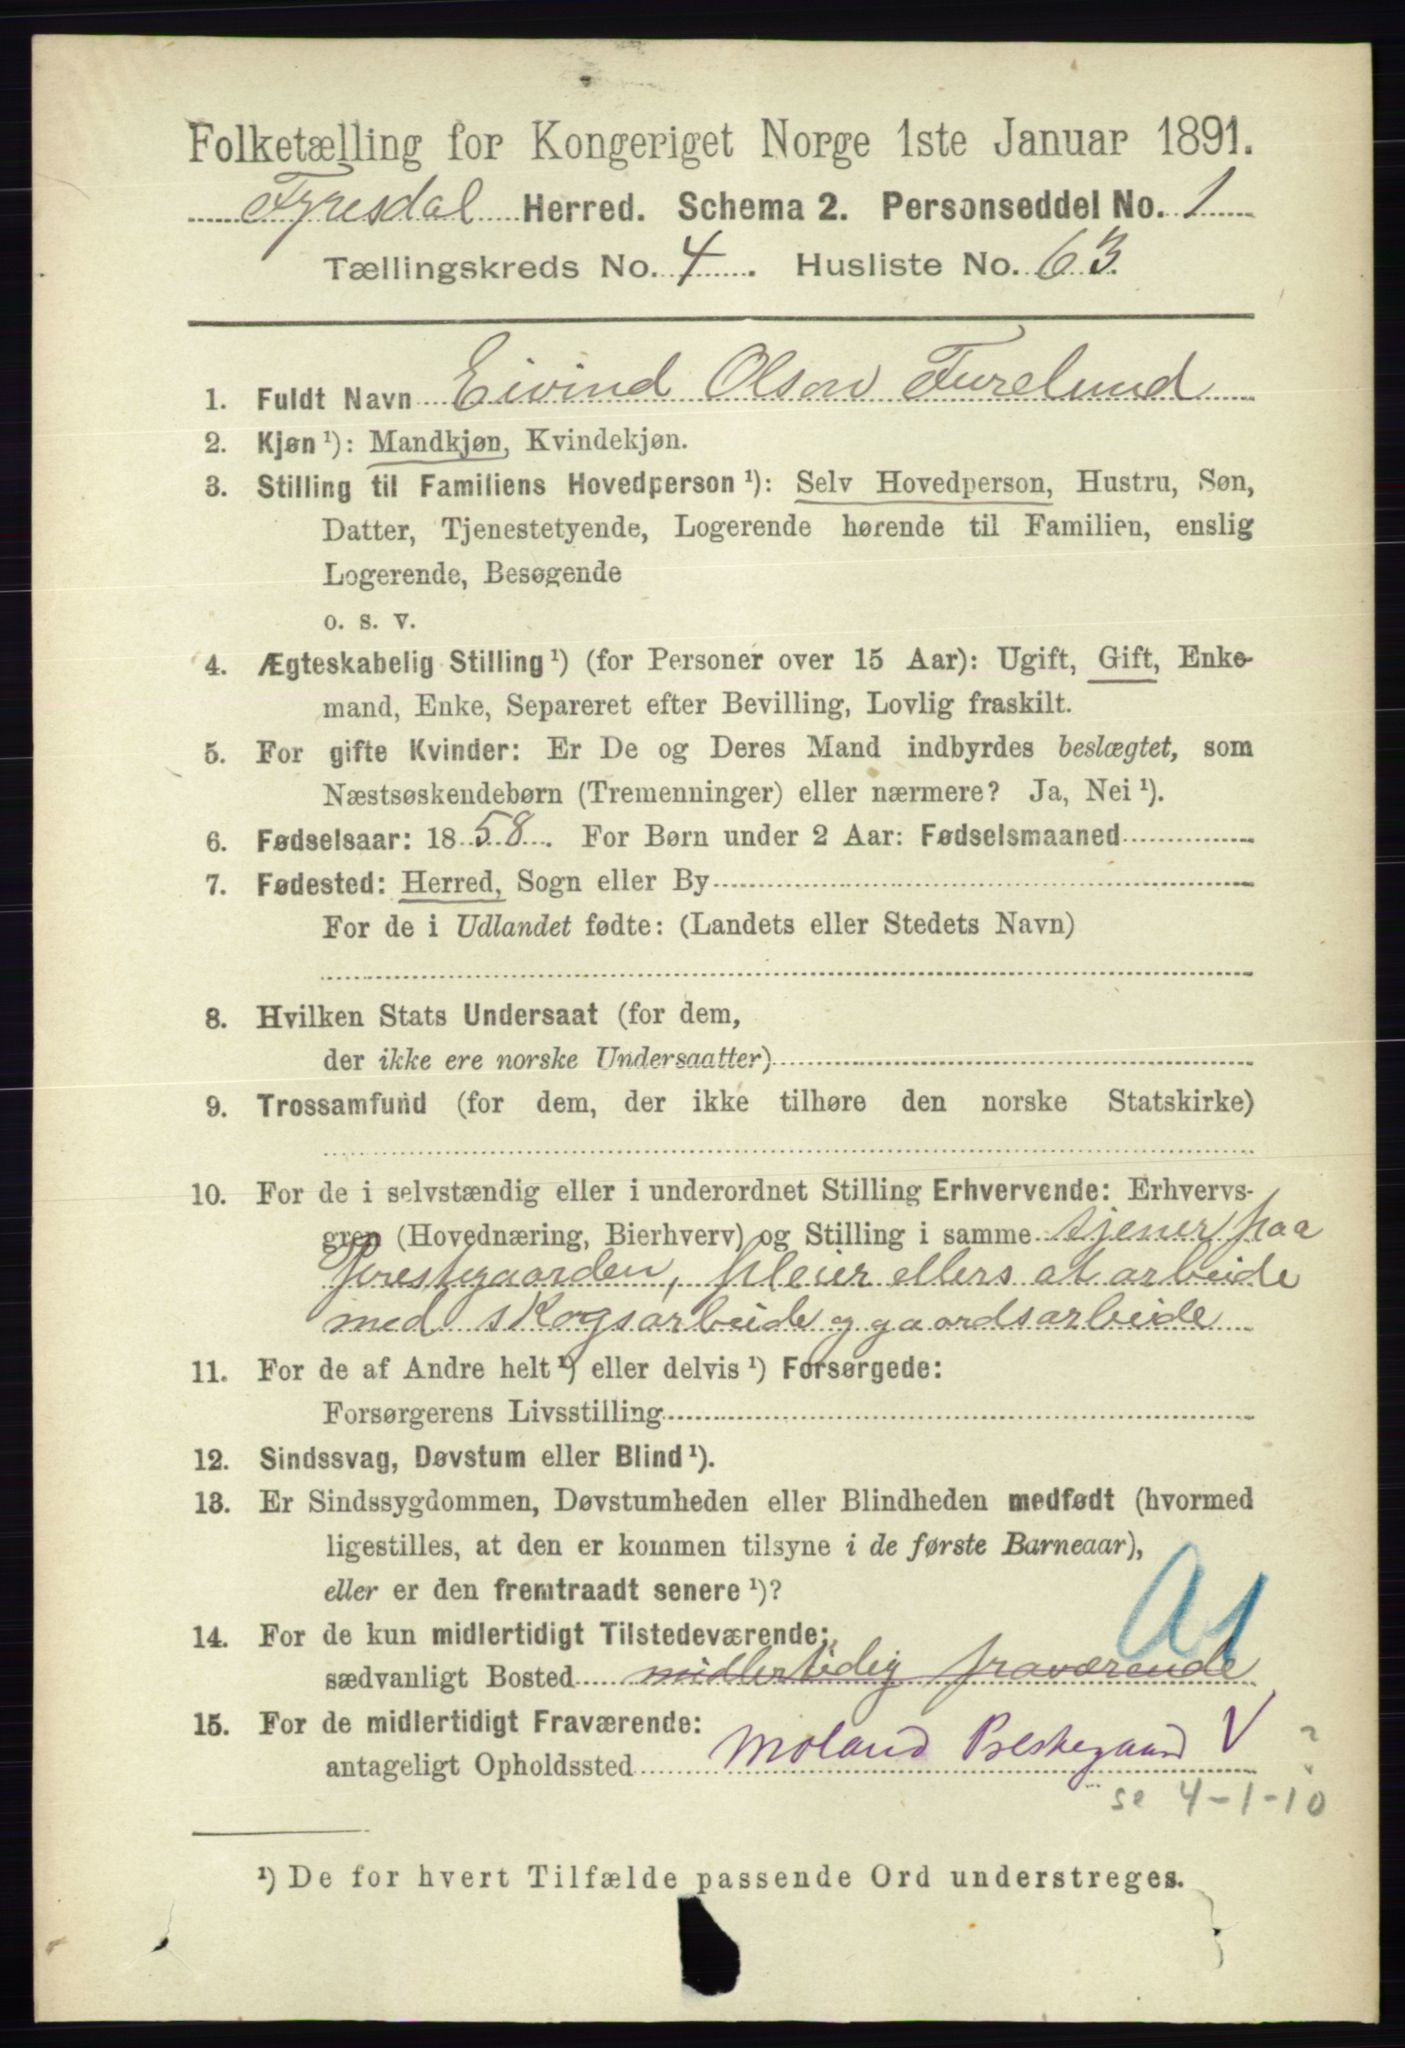 Folketælling for Kongeriget Norge 1ste Januar 1891.
Fyresdal Herred. Schema 2. Personseddel No. 1
Tællingskreds No. 4. Husliste No. 63.
1. Fuldt Navn Eivind Olson Furelund
2. Kjøn ¹): Mandkjøn, Kvindekjøn.
3. Stilling til Familiens Hovedperson ¹): Selv Hovedperson, Hustru, Søn,
Datter, Tjenestetyende, Logerende hørende til Familien, enslig
Logerende, Besøgende
o. s. v.
4. Ægteskabelig Stilling ¹) (for Personer over 15 Aar): Ugift, Gift, Enke-
mand, Enke, Separeret efter Bevilling, Lovlig fraskilt.
5. For gifte Kvinder: Er De og Deres Mand indbyrdes beslægtet, som
Næstsøskendebørn (Tremenninger) eller nærmere? Ja, Nei ¹).
6. Fødselsaar: 1858. For Børn under 2 Aar: Fødselsmaaned
7. Fødested: Herred, Sogn eller By
For de i Udlandet fødte: (Landets eller Stedets Navn)
8. Hvilken Stats Undersaat (for dem,
der ikke ere norske Undersaatter)
9. Trossamfund (for dem, der ikke tilhøre den norske Statskirke)
10. For de i selvstændig eller i underordnet Stilling Erhvervende: Erhvervs-
gren (Hovednæring, Bierhverv) og Stilling i samme tjener paa
Prestegaarden, pleier ellers at arbeide
med skogsarbeide og gaardsarbeide
11. For de af Andre helt ¹) eller delvis ¹) Forsørgede:
Forsørgerens Livsstilling
12. Sindssvag, Døvstum eller Blind ¹).
13. Er Sindssygdommen, Døvstumheden eller Blindheden medfødt (hvormed
ligestilles, at den er kommen tilsyne i de første Barneaar),
eller er den fremtraadt senere ¹)?
A1
14. For de kun midlertidigt Tilstedeværende:
sædvanligt Bosted midlertidig fraværende
15. For de midlertidigt Fraværende:
antageligt Opholdssted Moland Prestegaard V ?
se 4-1-10
¹) De for hvert Tilfælde passende Ord understreges.